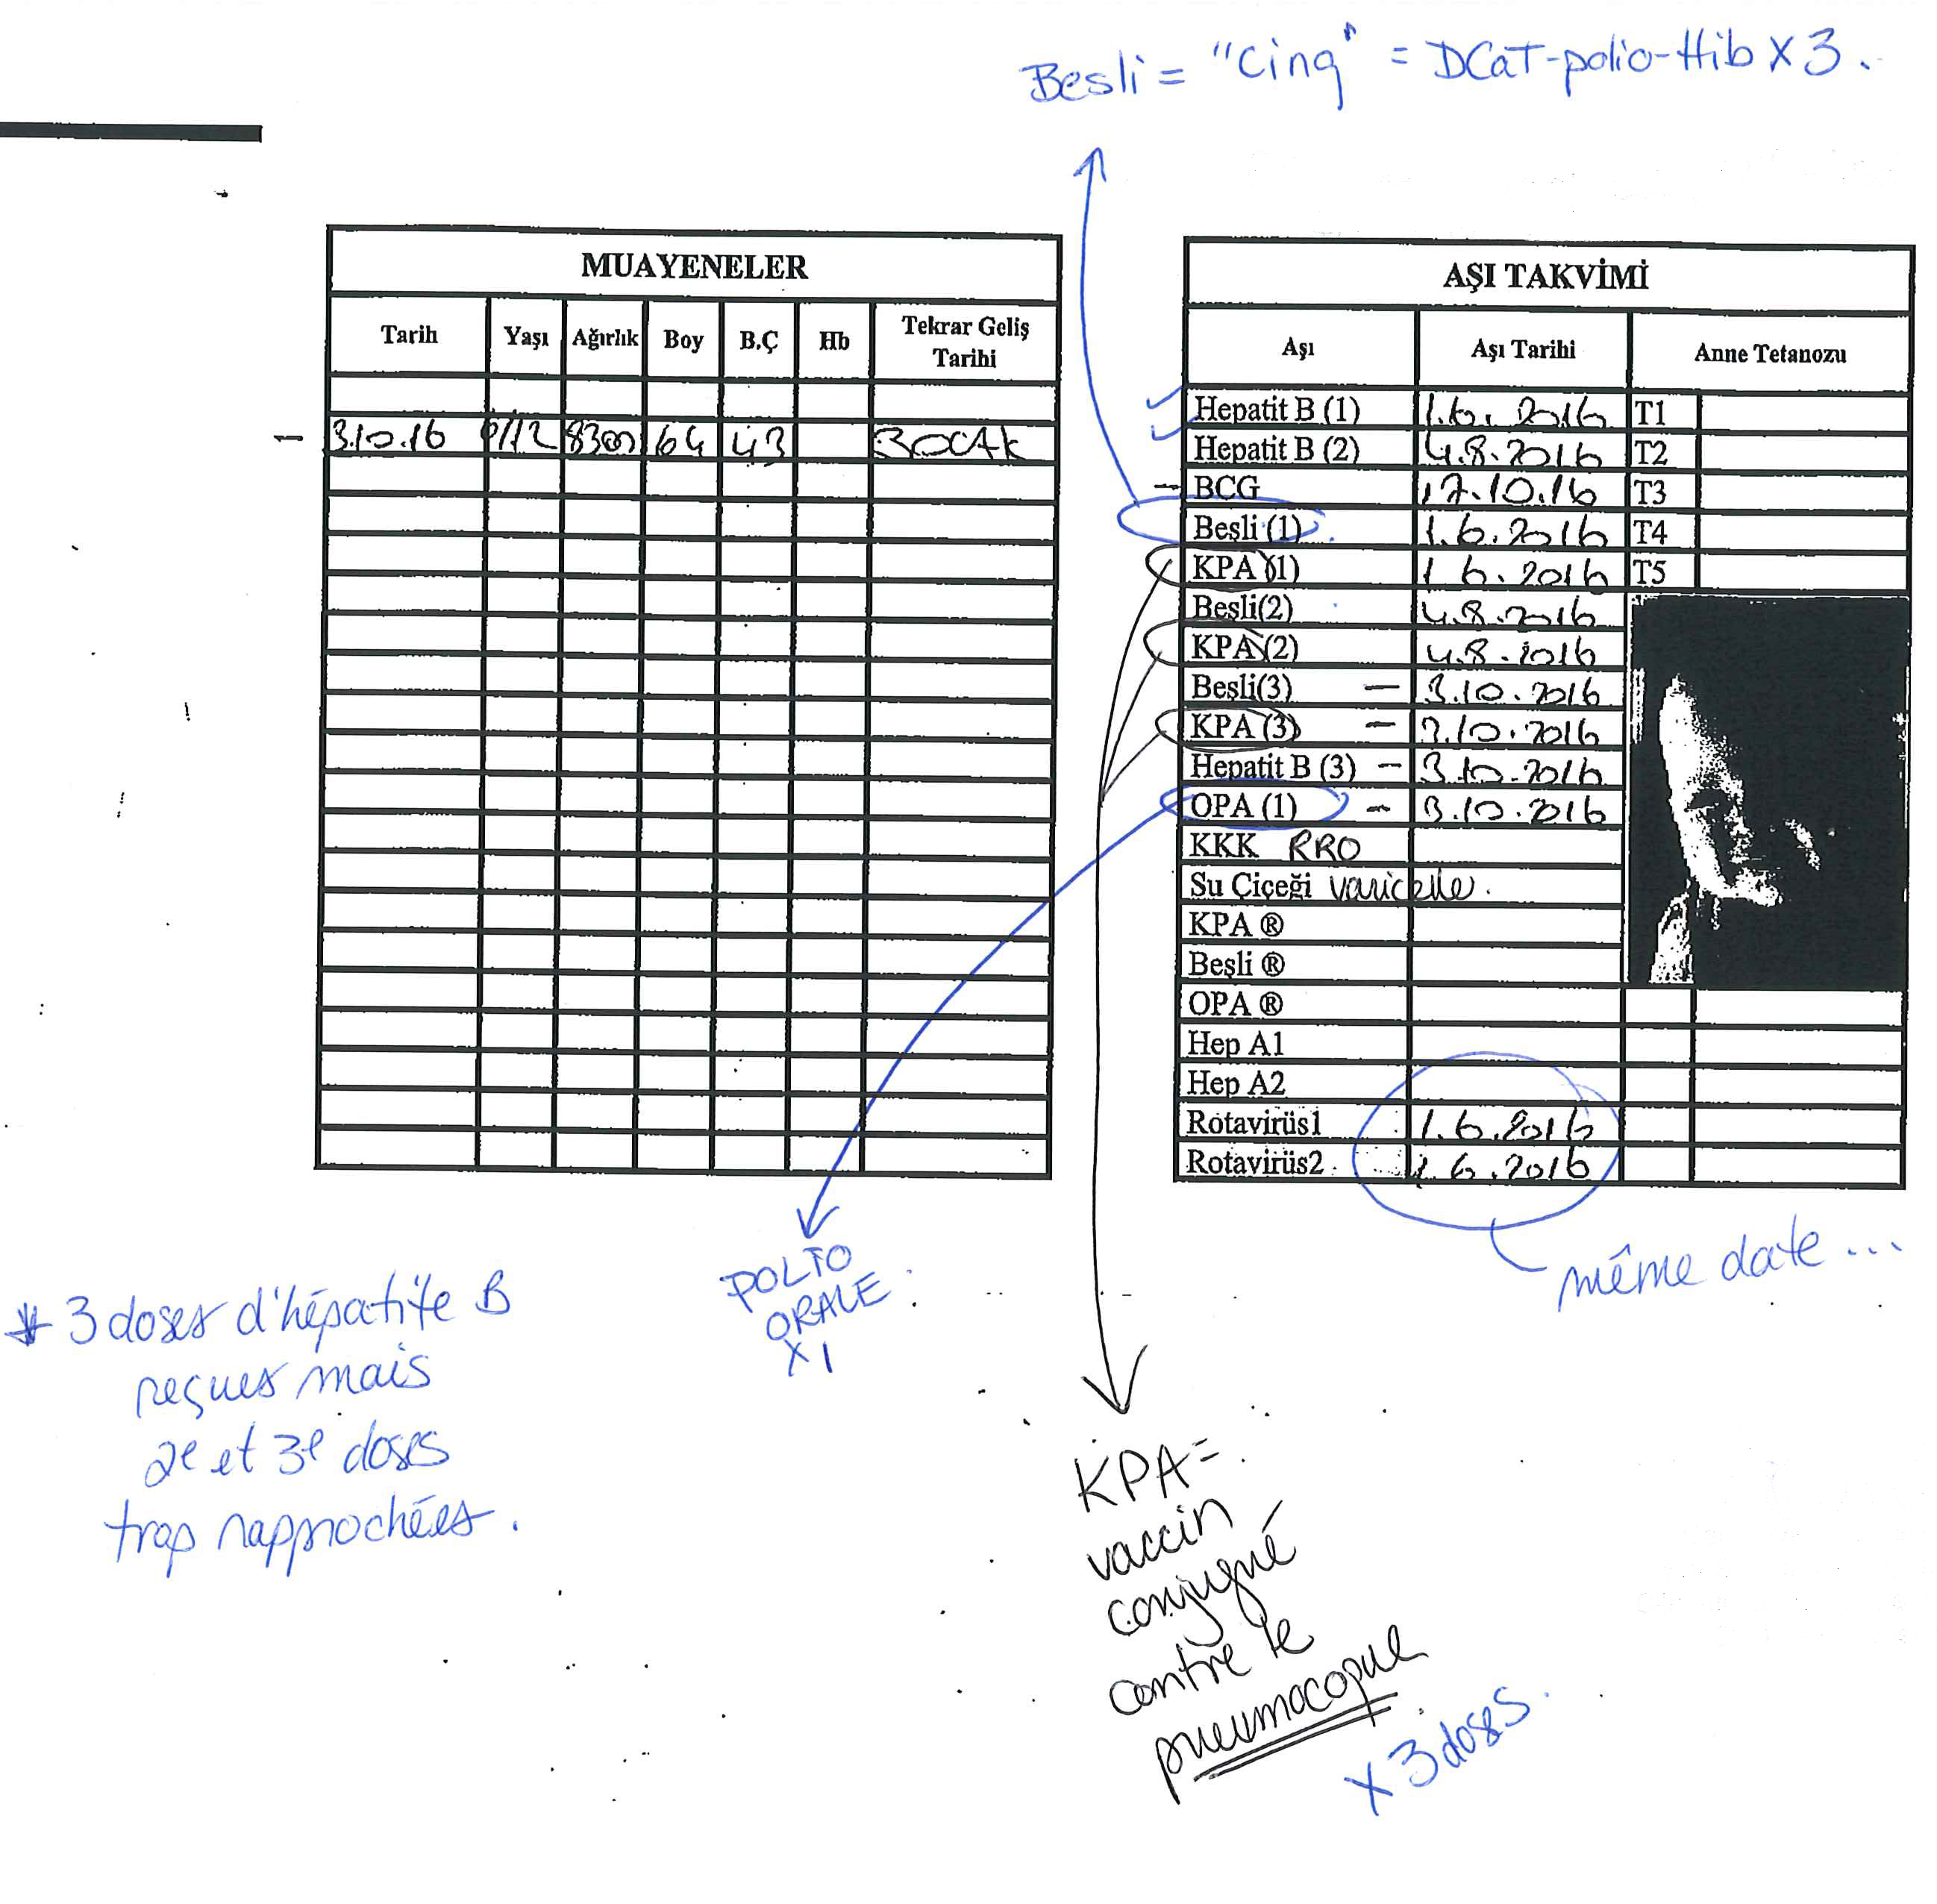 Besli = "Cinq" = DCaT-polio-Hib X 3.
MUAYENELER
Tarih Yaşı Ağırlık Boy B.Ç Hb Tekrar Geliş Tarihi
3.10.16 8300 64 43 3 OCAK
AŞI TAKVİMİ
Aşı Aşı Tarihi Anne Tetanozu
Hepatit B (1) 1.6.2016 T1
Hepatit B (2) 4.8.2016 T2
BCG 17.10.16 T3
Beşli (1) 1.6.2016 T4
KPA (1) 1 6.2016 T5
Beşli(2) 4.8.2016
KPA (2) 4.8.2016
Beşli(3) - 3.10.2016
KPA (3) - 3.10.2016
Hepatit B (3) - 3.10.2016
OPA (1) - 3.10.2016
KKK RRO
Su Çiçeği varicelle.
KPA ®
Beşli ®
OPA ®
Hep A1
Hep A2
Rotavirüs1 1.6.2016
Rotavirüs2 1.6.2016
même date ...
POLIO
ORALE
X 1
* 3 doses d'hépatite B
reçues mais
2e et 3e doses
trop rapprochées.
KPA =
vaccin
conjugué
contre le
pneumocoque
X 3 doses.